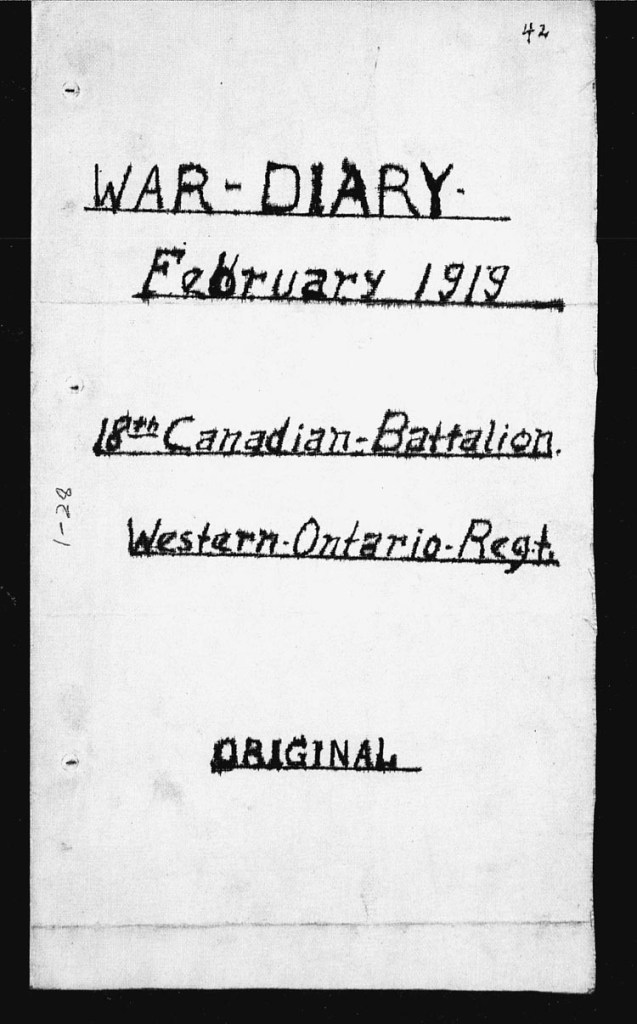 42
WAR-DIARY.
February 1919
18th Canadian-Battalion.
1-28
Western-Ontario-Regt.
ORIGINAL